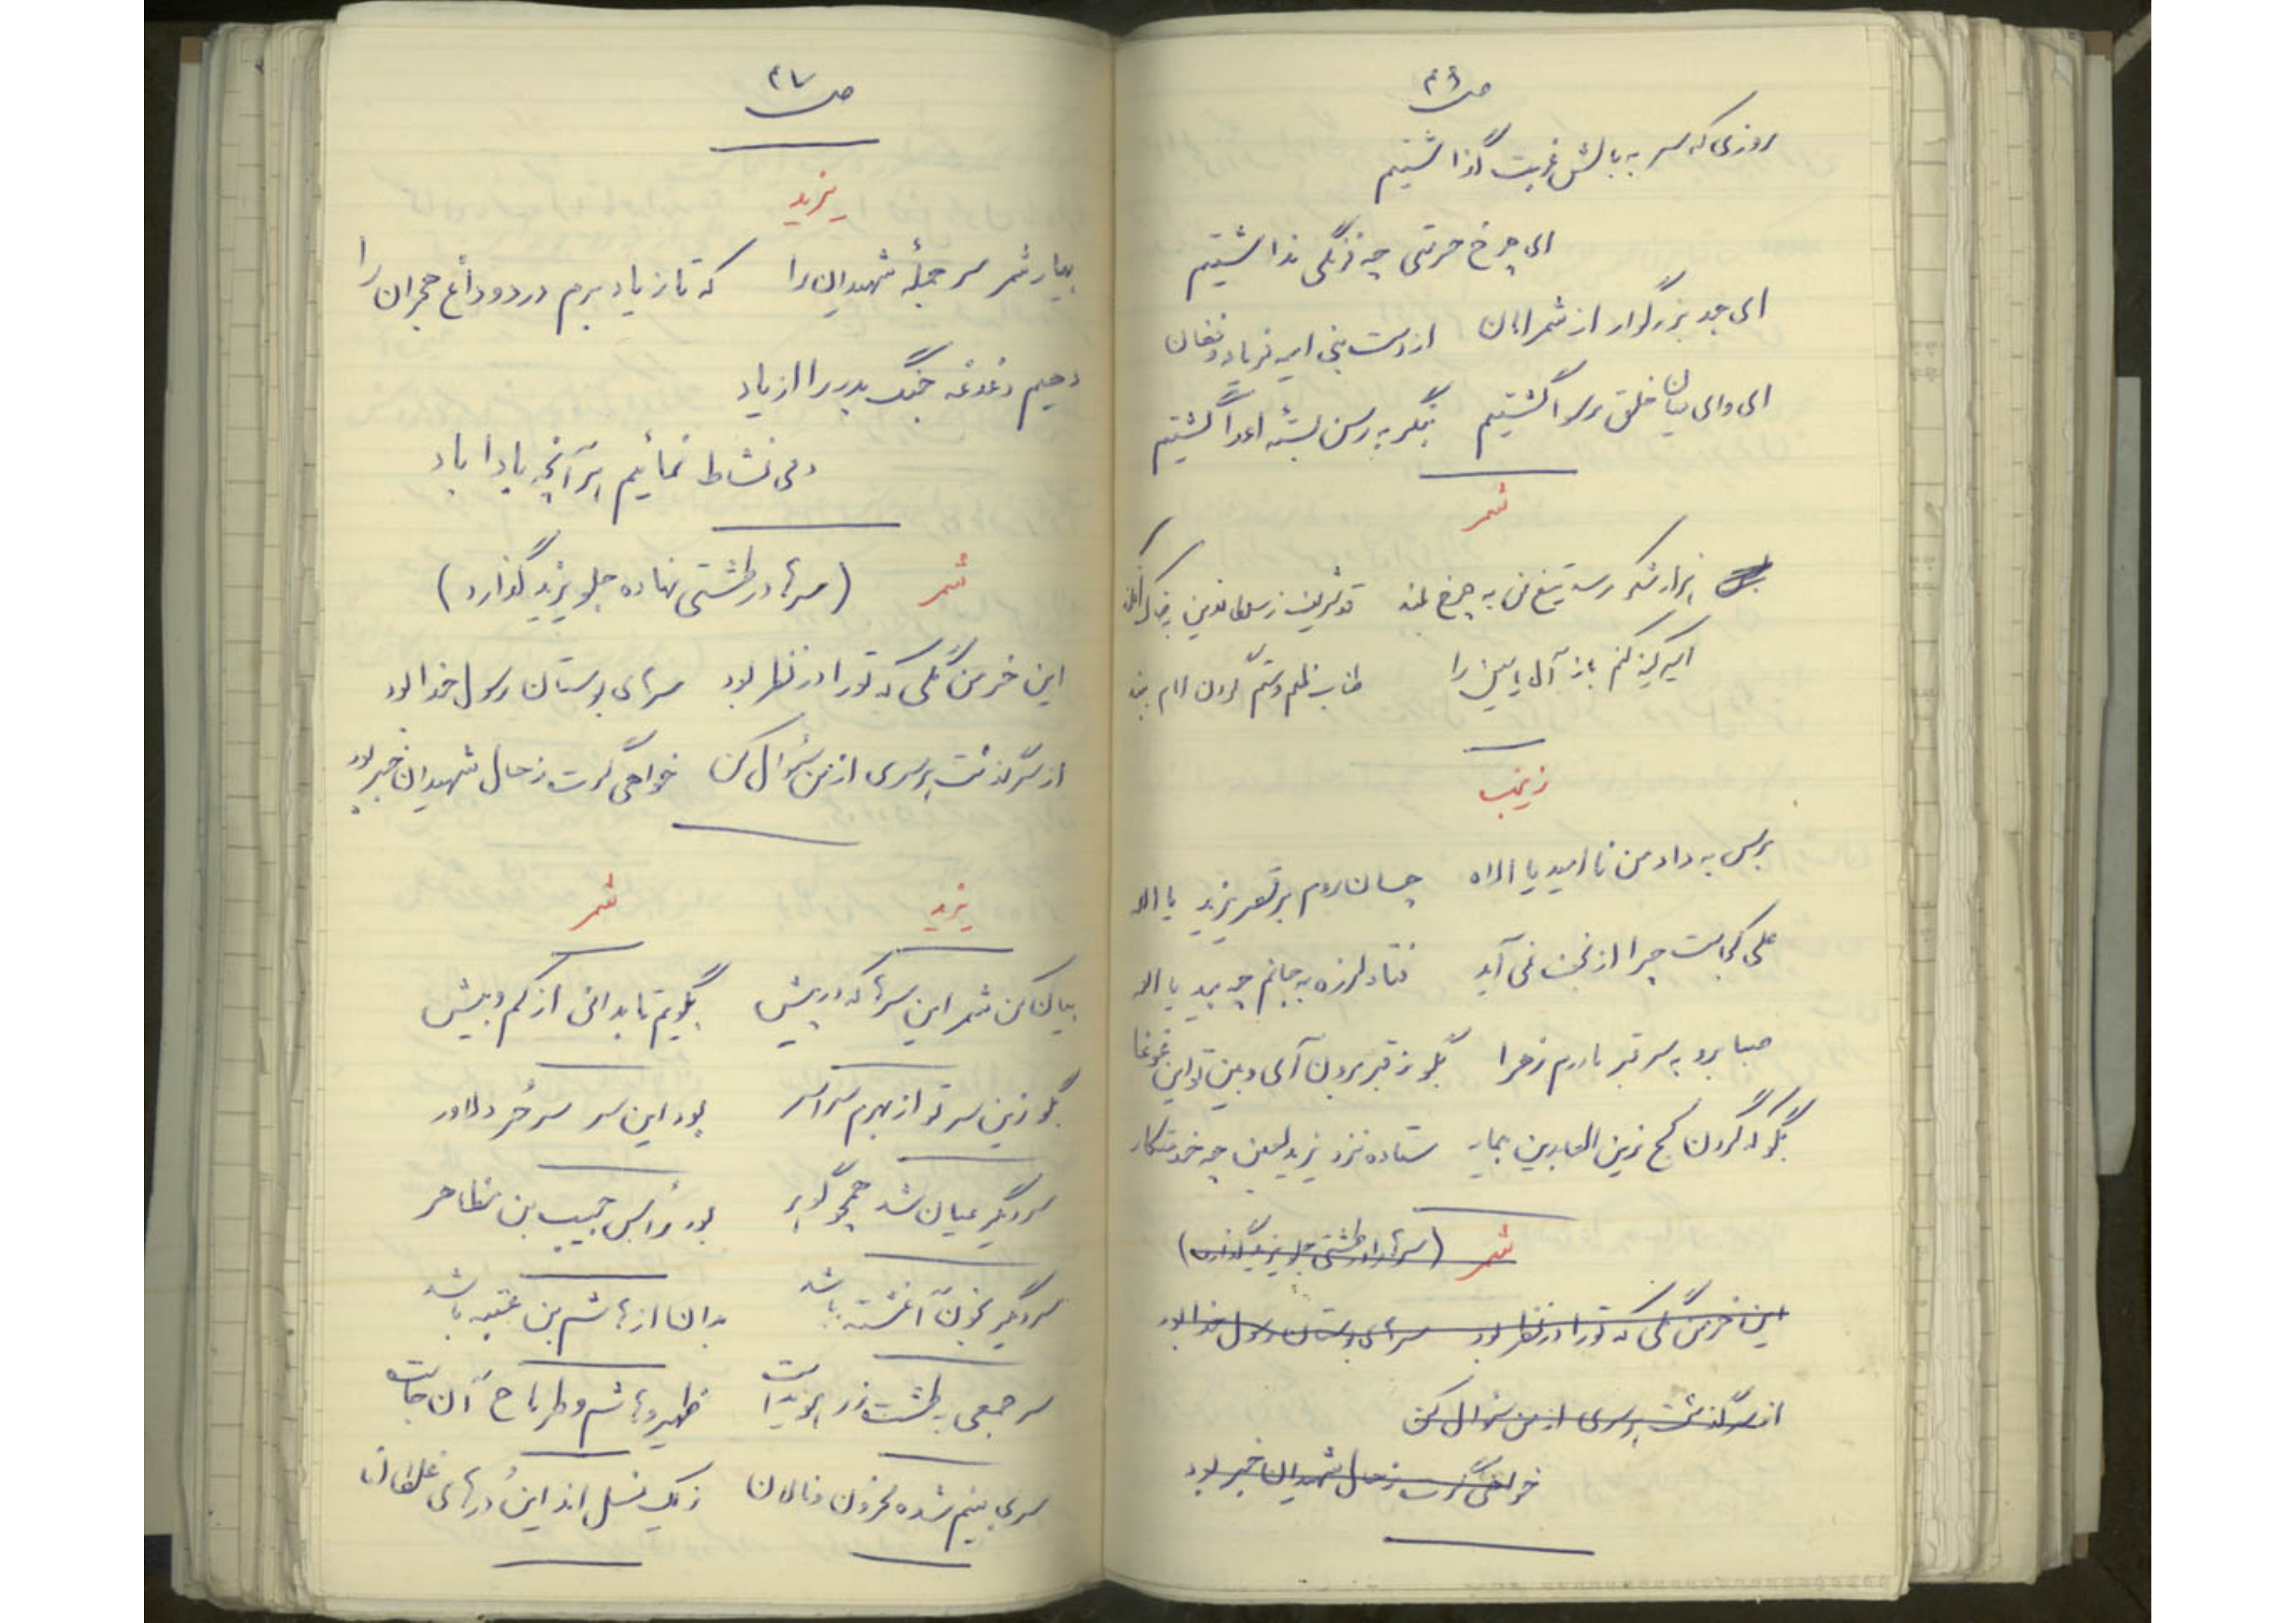 ص ۴۶
روزی که سر به بالش غربت گذاشتیم
ای چرخ حرمتی چه فرنگی نداشتیم
ای جد بزرگوار از شمر امان از دست بنی امیه فریاد و فغان
ای وای میان خلق رسوا گشتیم بنگر به رسن بسته اعدا گشتیم
شمر
هزار شکر رسد تیغ من به چرخ بلند
امیر کینه کنم باز آل یاسین را طناب ظلم و ستم
زینب
برس به داد من نا امید یا الاه چسان روم بر قصر یزید یا اله
علی کجاست چرا از نجف نمی آید فتاد لرزه به جانم چه بید یا اله
صبا برو به سر قبر مادرم زهرا بگو ز قبر برون آی و ببین تو این غوغا
بگو که گردن کج زین العابدین بیمار ستاده نزد یزید لعین چه خدمتکار
شمر (سرها را در طشتی جلو یزید گذارد)
این خرمن گلی که تو را در نظر بود سرهای بوستان رسول خدا بود
از سرگذشت هر سری از من سئوال کن
خواهی گرت ز حال شهیدان خبر بود
ص ۴۷
یزید
بیار شمر سر جملهٔ شهیدان را که تا ز یاد برم درد و داغ هجران را
دهیم دغدغه جنگ بدر را از یاد
دمی نشاط نمائیم هر آنچه بادا باد
شمر (سرها در طشتی نهاده جلو یزید گذارد)
این خرمن گلی که تو را در نظر بود سرهای بوستان رسول خدا بود
از سرگذشت هر سری از من سئوال کن خواهی گرت ز حال شهیدان خبر بود
یزید شمر
بیان کن شمر این سرها که در پیش بگویم تا بدانی از کم و بیش
بگو زین سر تو از بهرم سراسر بود این سر سر حُر دلاور
سر دیگر عیان شد همچو گوهر بود رأس حبیب بن مظاهر
سر دیگر بخون آغشته باشد بدان از هاشم بن عتبه باشد
سر جمعی به طشت زر هویداست ظهیر و هاشم و طرماح آن جاست
سری بینم شده محزون و نالان ز یک نسل اند این دُرهای غلطان